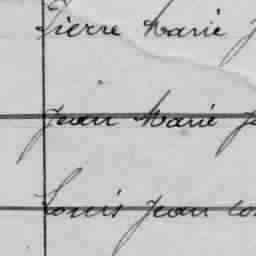 Pierre Marie J
Jean Marie Jo
Louis Jean Co